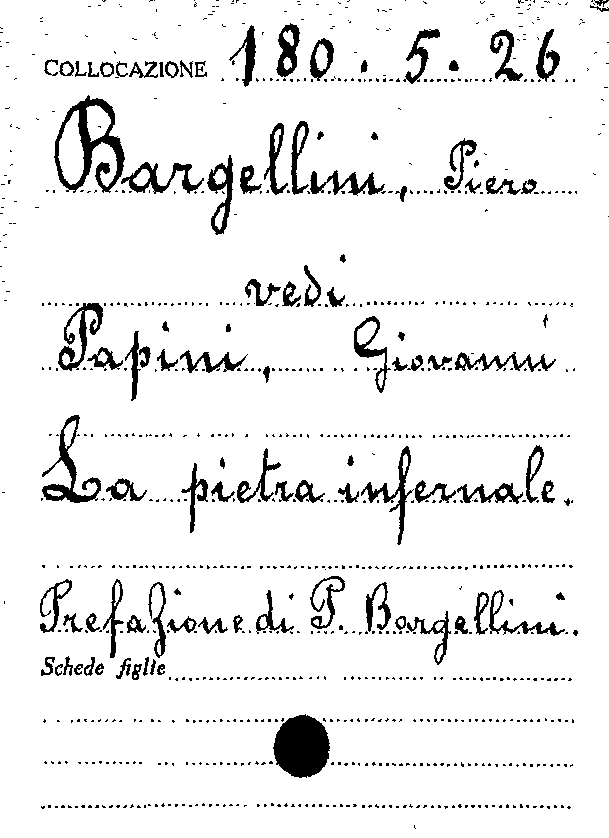 COLLOCAZIONE 180.5.26
Bargellini, Piero
vedi
Papini, Giovanni
La pietra infernale.
Prefazione di P. Bargellini.
Schede figlie